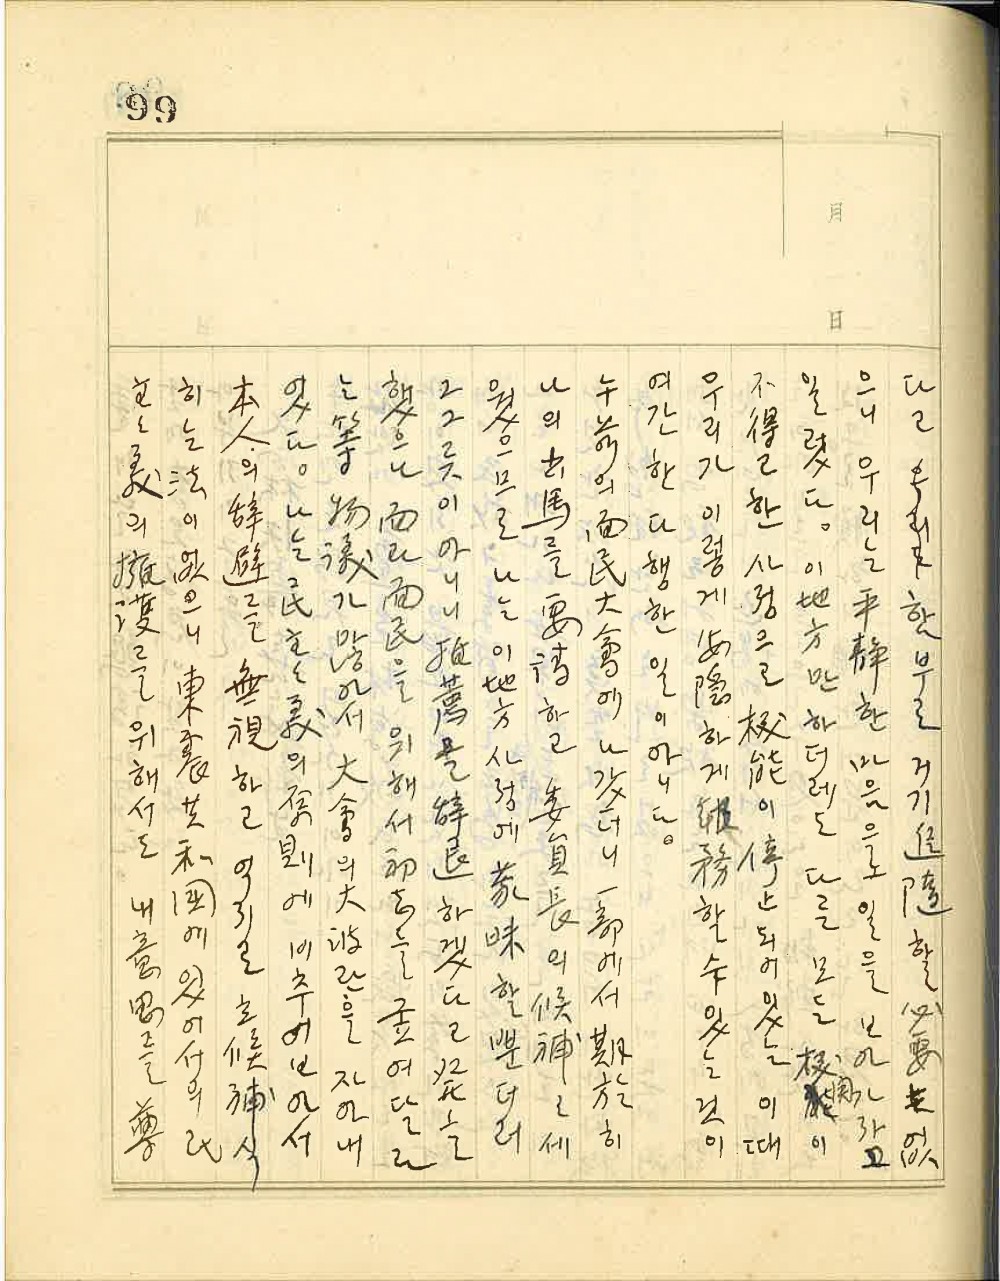 99
月
日
다고 우리가 함부로 거기 追隨할 必要도 없
으니 우리는 平静한 마음으로 일을 보아가라고
일렀다。 이 地方만 하더레도 다른 모든 機関이
不得已한 사정으로 機能이 停止되어 있는 이때
우리가 이렇게 安隱하게 執務할 수 있는 것이
여간한 다행한 일이 아니다。
午前의 面民大會에 나갔더니 一部에서 期於히
나의 出馬를 要請하고 委員長의 候補로 세
웠으므로 나는 이 地方 사정에 蒙昧할 뿐더러
그그릇이 아니니 推薦을 辞退하겠다고 発言
했으나 面과 面民을 위해서 初志를 굽여달라
는 等 物議가 많아서 大會의 大波란을 자아내
었다。 나는 民主主義의 原則에 비추어 보아서
本人의 辞避를 無視하고 억지로 立候補식
히는 法이 없으니 東義共和國에 있어서의 民
主主義의 擁護를 위해서도 내 意思를 尊